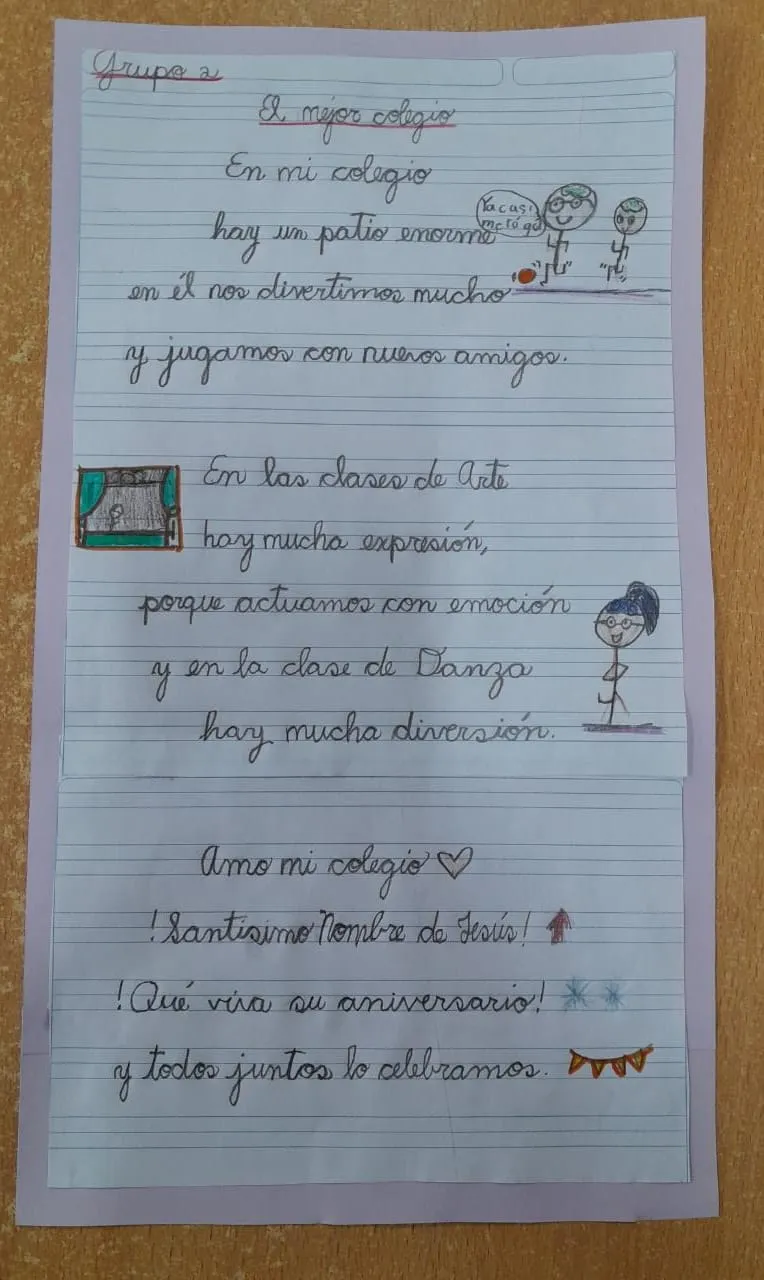 Grupo 2
El mejor colegio
En mi colegio
hay un patio enorme
Ya casi
meto gol
en él nos divertimos mucho
y jugamos con nuevos amigos.
En las clases de Arte
hay mucha expresión,
porque actuamos con emoción
y en la clase de Danza
hay mucha diversión.
Amo mi colegio
!Santísimo Nombre de Jesús!
!Qué viva su aniversario!
y todos juntos lo celebramos.